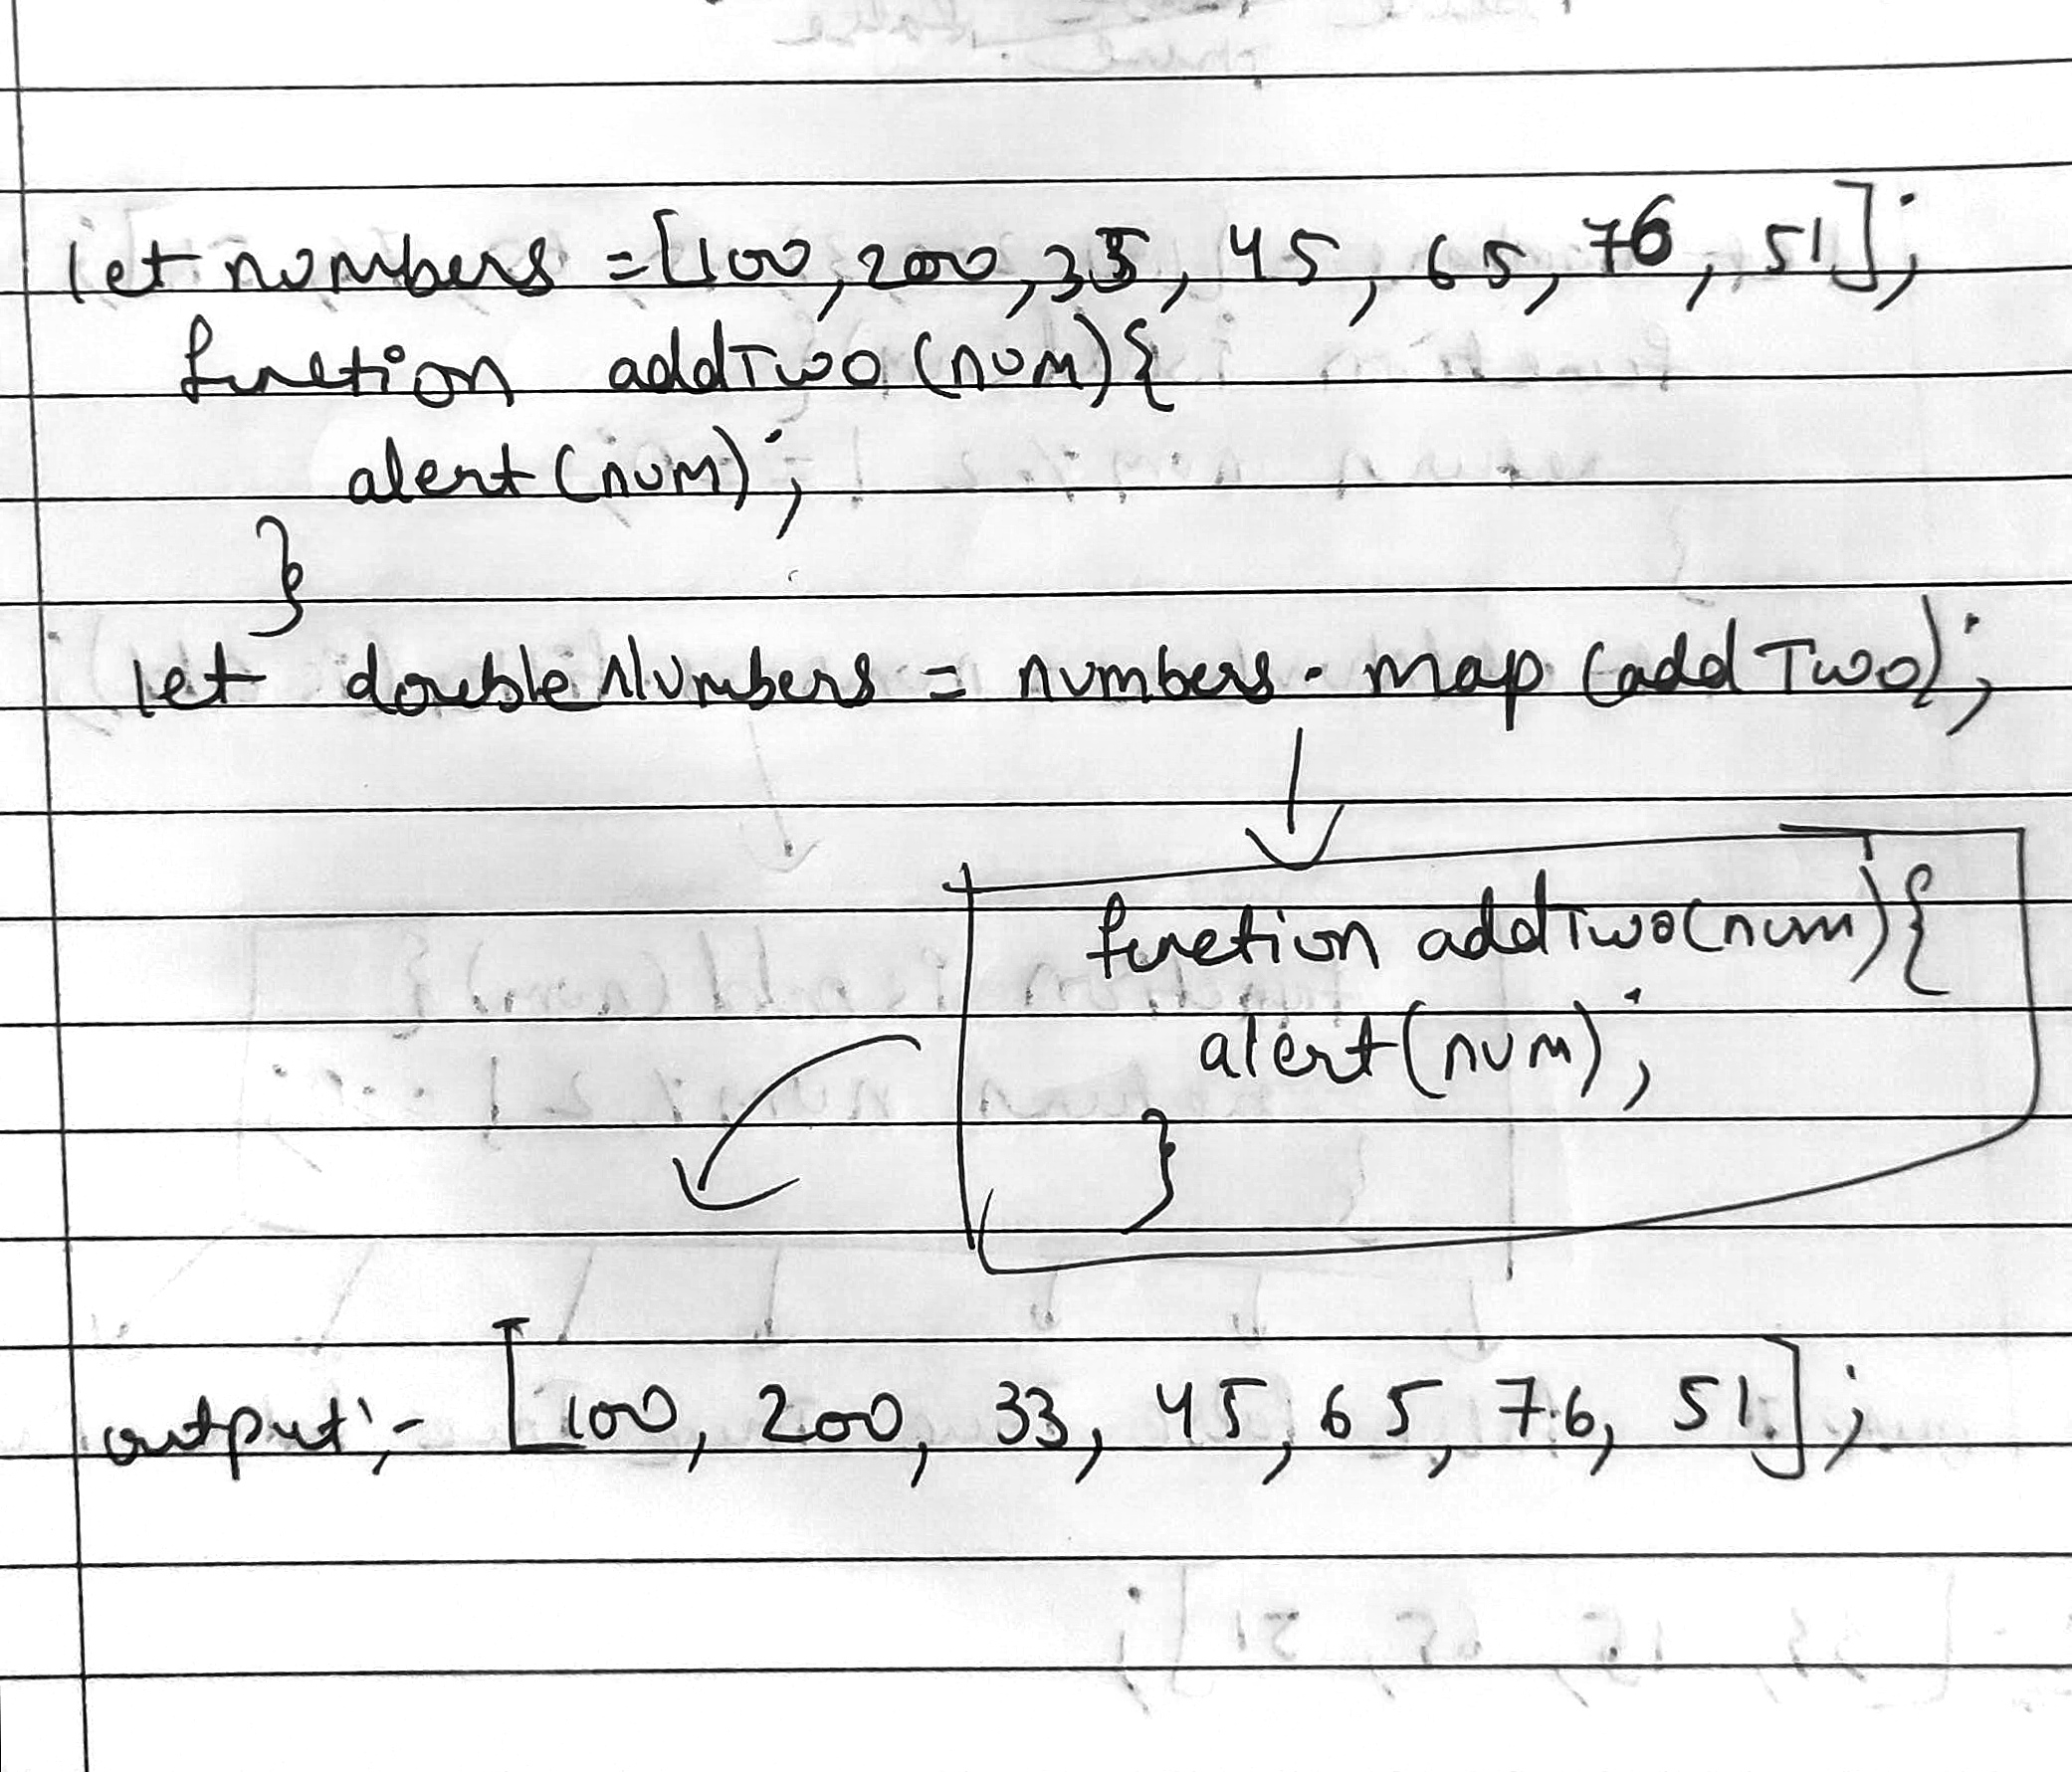 let numbers = [100, 200, 33, 45, 65, 76, 51];
function addTwo (num) {
alert (num);
}
let doubleNumbers = numbers . map (addTwo);
function addTwo(num) {
alert(num);
}
output:- [100, 200, 33, 45, 65, 76, 51];